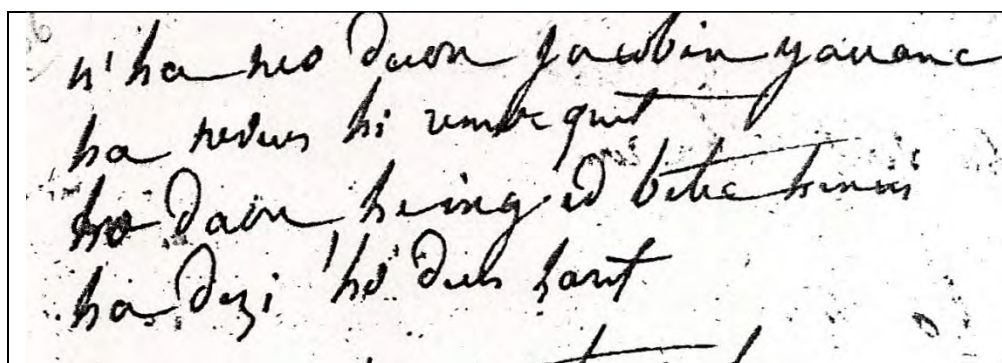 n' ha neo daou Jacobin yaouanc
ha neves hi quet
ho daou heing id betec hinui
ha dezi 'ho deus laret